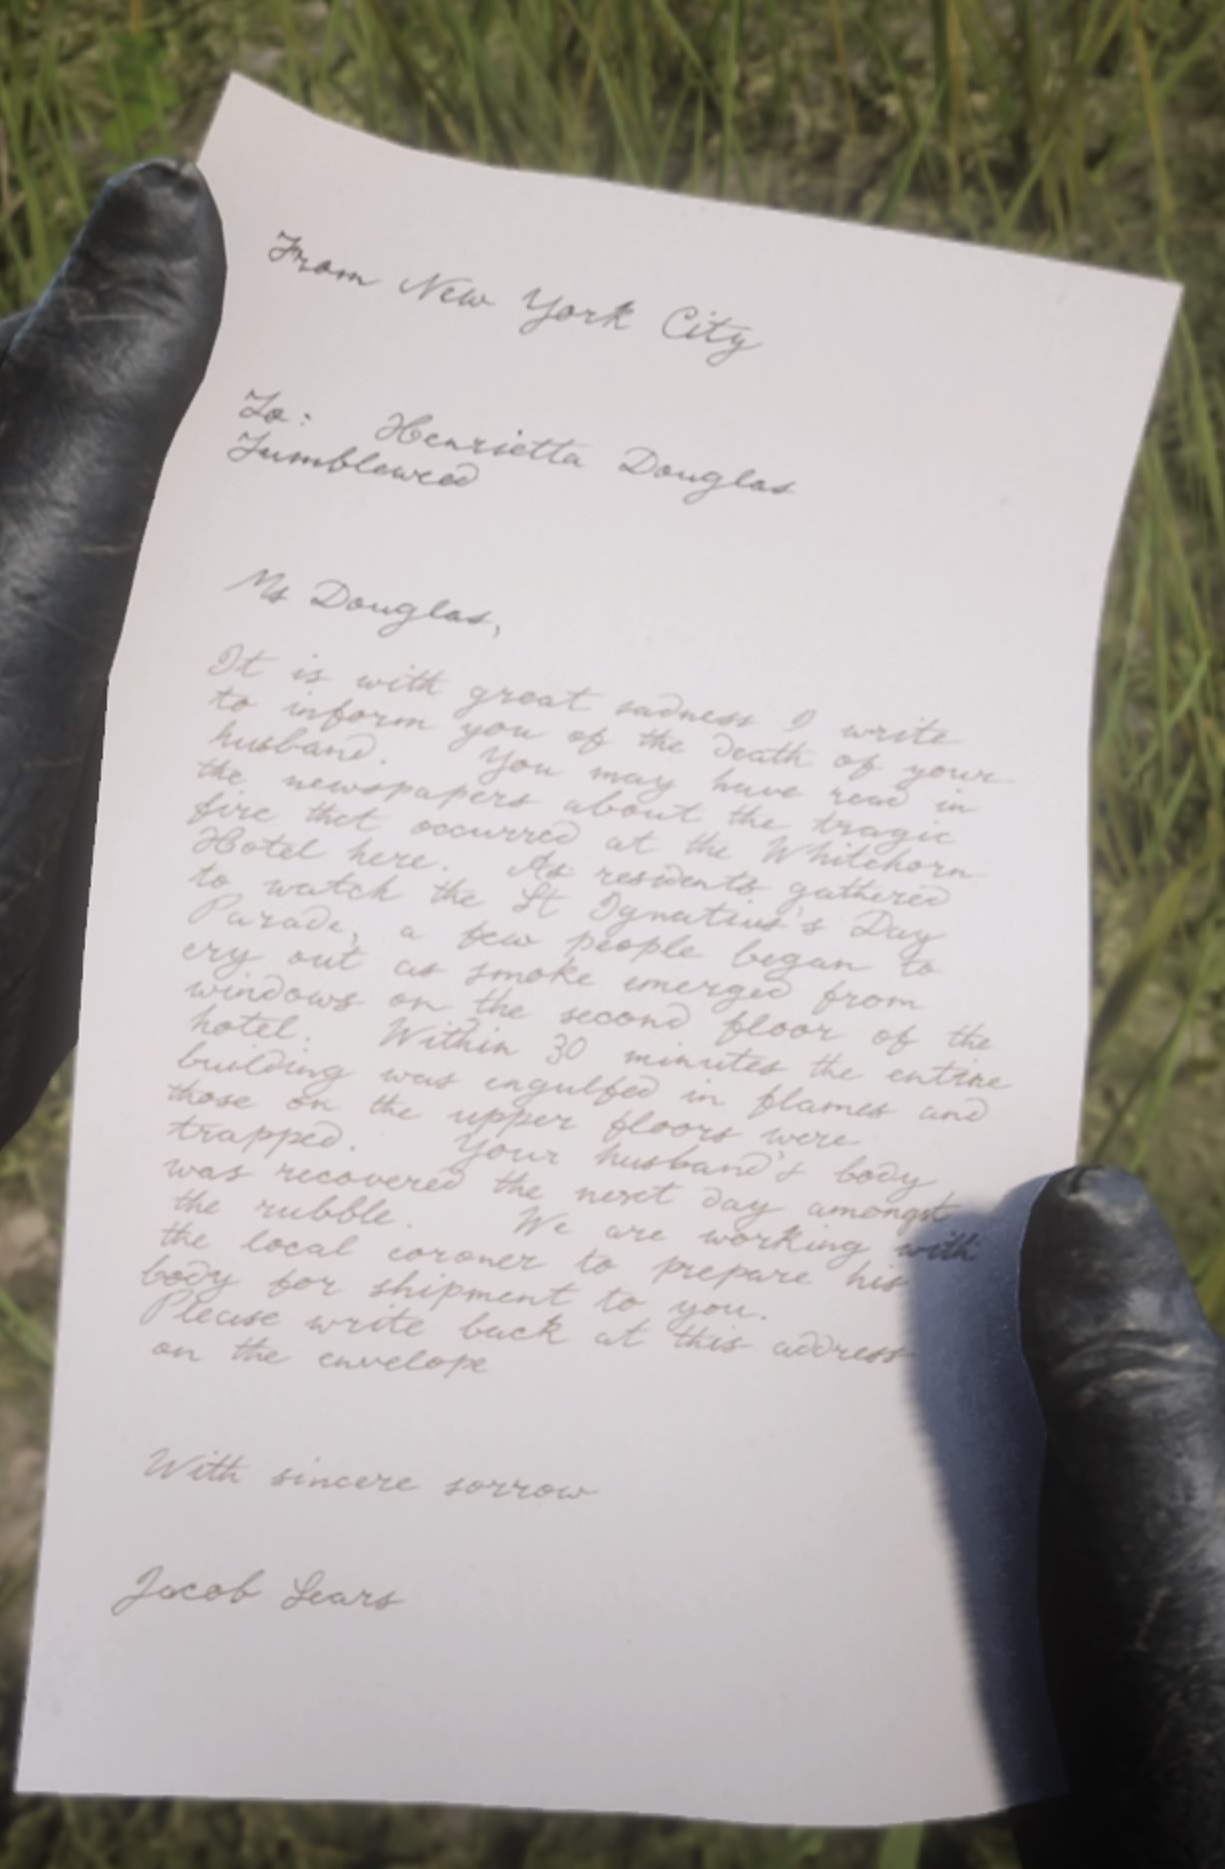 From New York City
To: Henrietta Douglas
Tumbleweed
Ms Douglas,
It is with great sadness I write
to inform you of the death of your
husband. You may have read in
the newspapers about the tragic
fire that occurred at the Whitehorn
Hotel here. As residents gathered
to watch the St Ignatius's Day
Parade, a few people began to
cry out as smoke emerged from
windows on the second floor of the
hotel. Within 30 minutes the entire
building was engulfed in flames and
those on the upper floors were
trapped. Your husband's body
was recovered the next day amongst
the rubble. We are working with
the local coroner to prepare his
body for shipment to you.
Please write back at this address
on the envelope
With sincere sorrow
Jacob Sears